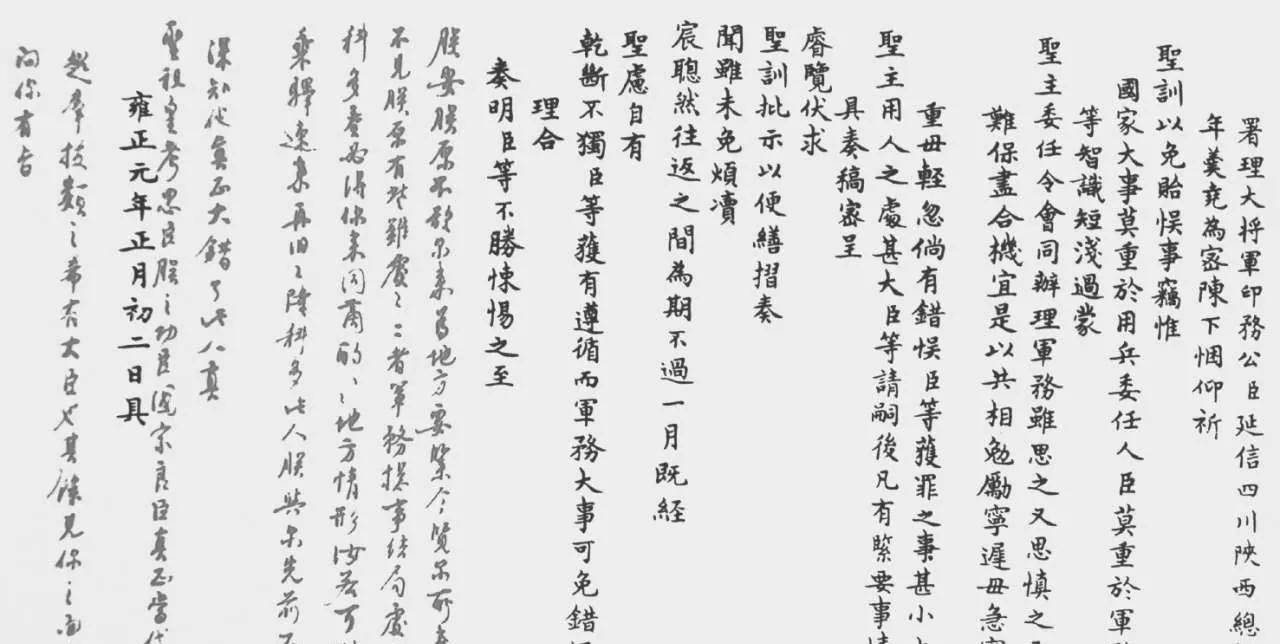 署理大将軍印務公臣延信四川陝西總
年羹堯為密陳下悃仰祈
聖訓以免貽悞事竊惟
國家大事莫重於用兵委任人臣莫重於軍
等智識短淺過蒙
聖主委任令會同辦理軍務雖思之又思慎之
難保盡合機宜是以共相勉勵寧遲毋急
重毋輕忽倘有錯悞臣等獲罪之事甚小
聖主用人之處甚大臣等請嗣後凡有緊要事情
具奏稿密呈
睿覽伏求
聖訓批示以便繕摺奏
聞雖未免煩瀆
宸聰然往返之間為期不過一月既經
聖慮自有
乾斷不獨臣等獲有遵循而軍務大事可免錯
理合
奏明臣等不勝悚惕之至
朕安朕原不欲尔來為地方要緊今覽尔所奏
不見朕原有些難處々二者軍務總事結局處
科多奏必得你來同商酌々地方情形汝若可
乘驛速來再旧々隆科多此人朕與尔先前不
深知他真正大錯了此人真
聖祖皇考忠臣朕之功臣國家良臣真正當代
雍正元年正月初二日具
超羣拔類之希有大臣也其餘見你之面
問你有旨